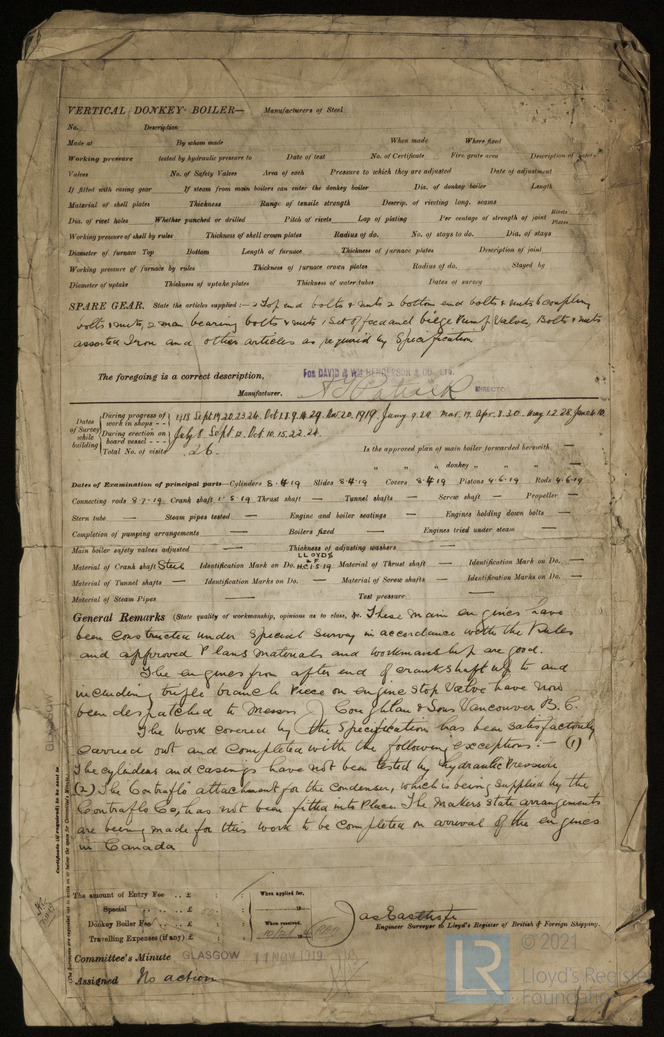 VERTICAL DONKEY BOILER— Manufacturers of Steel
No. Description
Made at By whom made When made Where fixed
Working pressure tested by hydraulic pressure to Date of test No. of Certificate Fire grate area Description of safety
Valves No. of Safety Valves Area of each Pressure to which they are adjusted Date of adjustment
If fitted with easing gear If steam from main boilers can enter the donkey boiler Dia. of donkey boiler Length
Material of shell plates Thickness Range of tensile strength Descrip. of riveting long. seams
Dia. of rivet holes Whether punched or drilled Pitch of rivets Lap of plating Per centage of strength of joint Rivets Plates
Working pressure of shell by rules Thickness of shell crown plates Radius of do. No. of stays to do. Dia. of stays
Diameter of furnace Top Bottom Length of furnace Thickness of furnace plates Description of joint
Working pressure of furnace by rules Thickness of furnace crown plates Radius of do. Stayed by
Diameter of uptake Thickness of uptake plates Thickness of water tubes Dates of survey
SPARE GEAR. State the articles supplied:— 2 Top end bolts & nuts 2 bottom end bolts & nuts 6 coupling
bolts & nuts, 2 main bearing bolts & nuts 1 Set of feed and bilge Pump Valves, Bolts & nuts
assorted Iron and other articles as required by Specification
The foregoing is a correct description,
FOR DAVID & WM HENDERSON & CO., LTD.
Manufacturer. DIRECTOR
Dates of Survey while building
During progress of work in shops - - 1918 Sept 19.20.23.24. Oct 1.8.9.16.29. Nov 20. 1919 Jany 9.29 Mar. 19. Apr. 8.30. May 1.2.28 June 4.10.
During erection on board vessel - - - July 8 Sept 12. Oct. 10.15.22.24.
Total No. of visits 26.
Is the approved plan of main boiler forwarded herewith —
" " " donkey " " " —
Dates of Examination of principal parts—Cylinders 8.4.19 Slides 8.4.19 Covers 8.4.19 Pistons 4.6.19 Rods 4.6.19
Connecting rods 8.7.19 Crank shaft 1.5.19 Thrust shaft — Tunnel shafts — Screw shaft — Propeller —
Stern tube — Steam pipes tested — Engine and boiler seatings — Engines holding down bolts —
Completion of pumping arrangements — Boilers fixed — Engines tried under steam —
Main boiler safety valves adjusted — Thickness of adjusting washers —
Material of Crank shaft Steel Identification Mark on Do. LLOYDS H.C.1.5.19 Material of Thrust shaft — Identification Mark on Do. —
Material of Tunnel shafts — Identification Marks on Do. — Material of Screw shafts — Identification Marks on Do. —
Material of Steam Pipes — Test pressure
General Remarks (State quality of workmanship, opinions as to class, &c. These main engines have
been constructed under Special Survey in accordance with the Rules
and approved Plans materials and workmanship are good.
The engines from after end of crankshaft up to and
including triple branch Piece on engine stop Valve have now
been despatched to Messrs J Coughlan & Sons Vancouver B.C.
The work covered by the Specification has been satisfactorily
carried out and completed with the following exceptions:— (1)
The cylinders and casings have not been tested by Hydraulic Pressure
(2) The Contraflo attachment for the condenser, which is being supplied by the
Contraflo Co, has not been fitted into Place. The makers state arrangements
are being made for this work to be completed on arrival of the engines
in Canada
The amount of Entry Fee .. £ When applied for,
Special .. £
Donkey Boiler Fee .. £ When received,
Travelling Expenses (if any) £
Jas Easthope
Engineer Surveyor to Lloyd's Register of British & Foreign Shipping.
Committee's Minute GLASGOW 11 NOV 1919
Assigned No action
GLASGOW
Certificate (if required) to be sent to
© 2021
LR
Lloyd's Register
Foundation